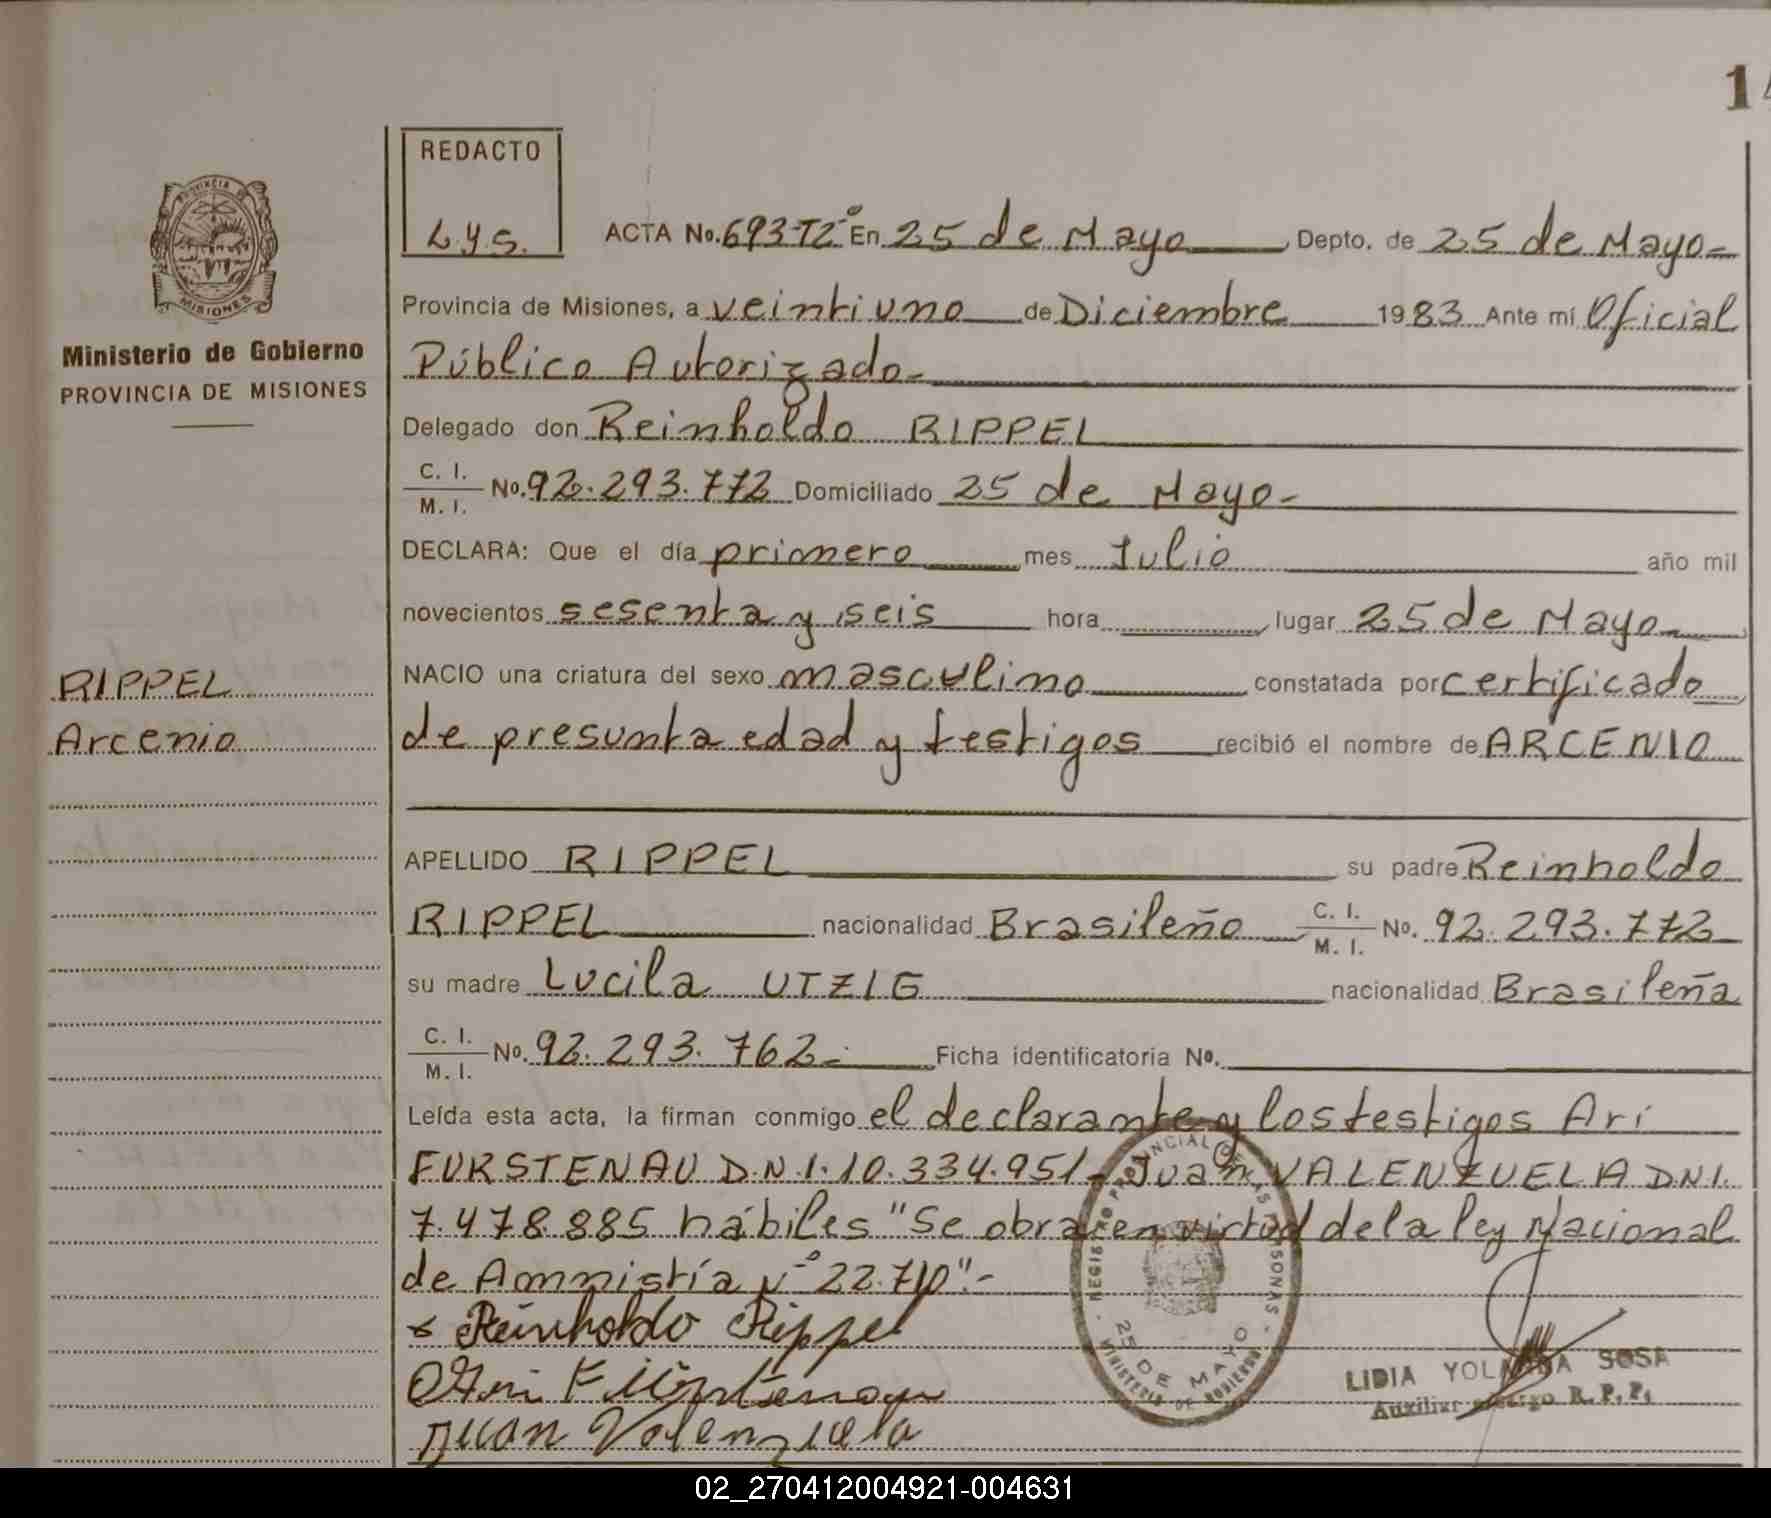 14
REDACTO
L.y.s.
PROVINCIA DE
MISIONES
Ministerio de Gobierno
PROVINCIA DE MISIONES
RIPPEL
Arcenio
ACTA No. 693-T2º En 25 de Mayo Depto. de 25 de Mayo-
Provincia de Misiones, a veintiuno de Diciembre 1983 Ante mí Oficial
Público Autorizado-
Delegado don Reinholdo RIPPEL
C. I. / M. I. No. 92.293.772 Domiciliado 25 de Mayo-
DECLARA: Que el día primero mes Julio año mil
novecientos sesenta y seis hora lugar 25 de Mayo-
NACIO una criatura del sexo masculino constatada por certificado
de presunta edad y testigos recibió el nombre de ARCENIO
APELLIDO RIPPEL su padre Reinholdo
RIPPEL nacionalidad Brasileño C. I. / M. I. No. 92.293.772
su madre Lucila UTZIG nacionalidad Brasileña
C. I. / M. I. No. 92.293.762- Ficha identificatoria No.
Leída esta acta, la firman conmigo el declarante y los testigos Ari
FURSTENAU D.N.I. 10.334.951- Juan VALENZUELA DNI.
7.478.885 hábiles "Se obra en virtud de la ley Nacional
de Amnistía Nº 22.710".-
Reinholdo Rippel
Juan Valenzuela
REGISTRO PROVINCIAL DE LAS PERSONAS
25 DE MAYO
MINISTERIO DE GOBIERNO
LIDIA YOLANDA SOSA
Auxiliar a cargo R. P. P.
02_270412004921-004631